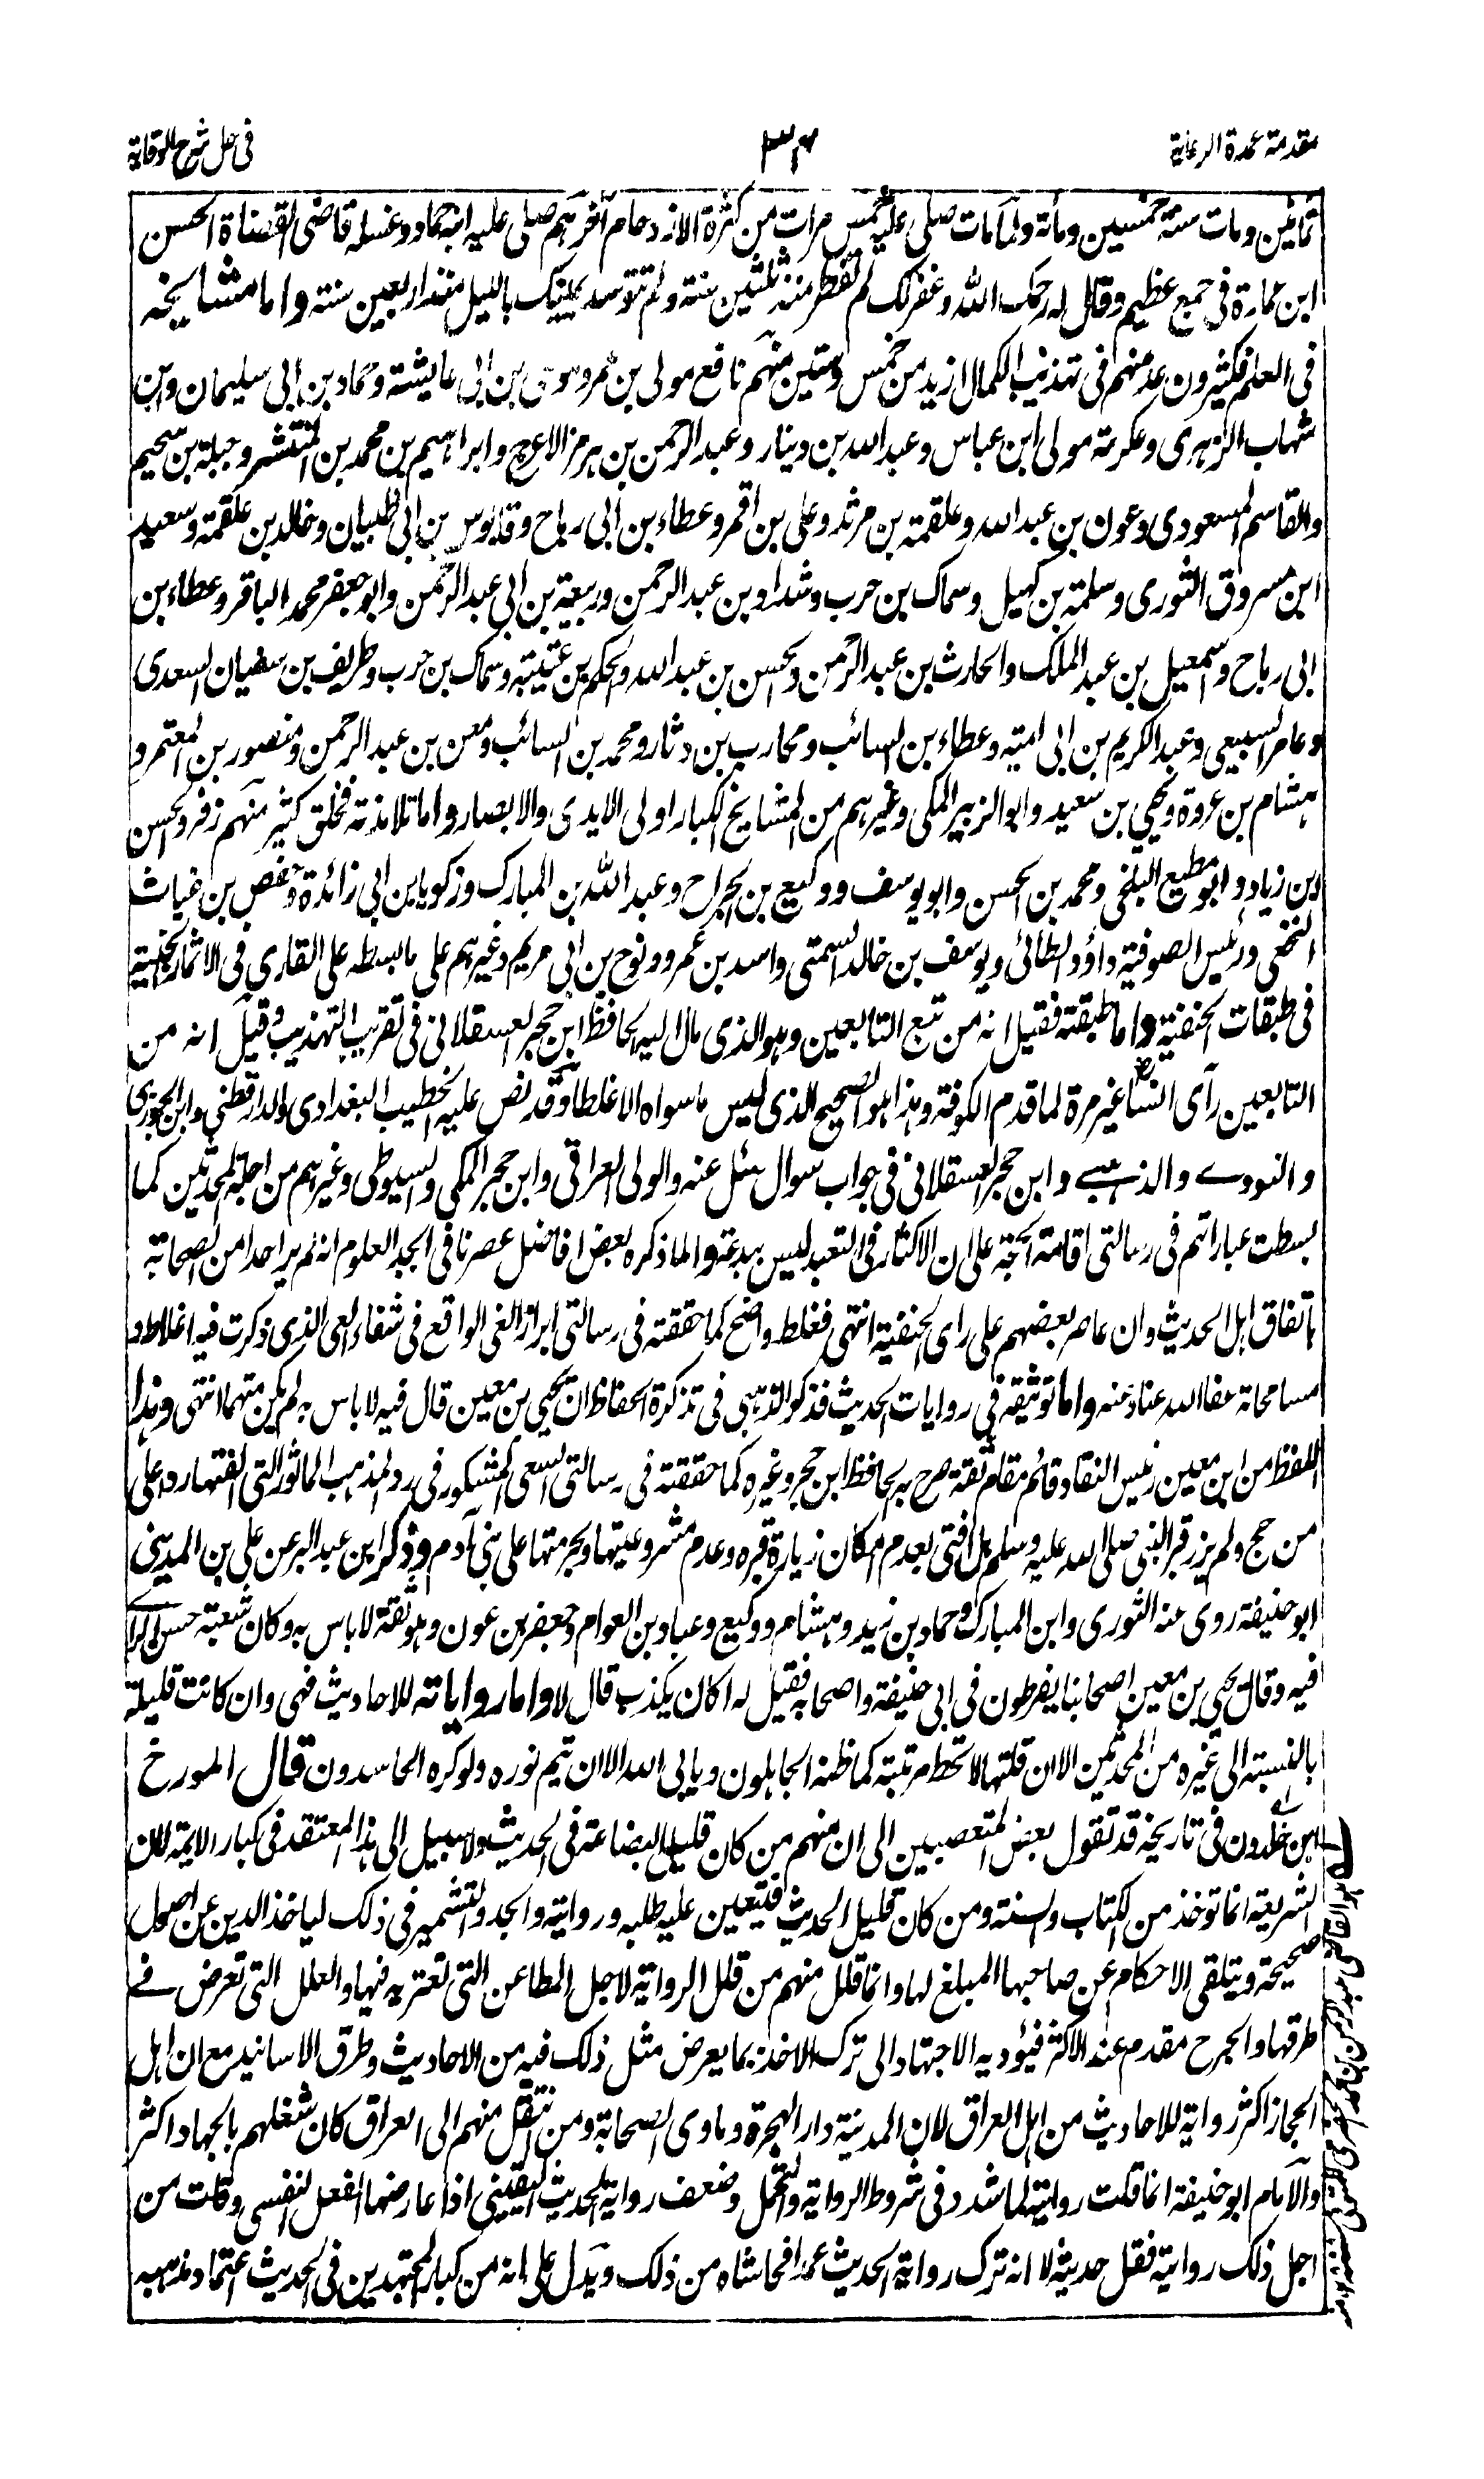 مقدمة عمدة الرعاية
٣٤
فى حل شرح الوقاية
ثمانين ومات سنة خمسين ومأة ولما مات صلى عليه خمس مرات من كثرة الازدحام آخرهم صلى عليه ابنه حماد وغسله قاضى القضاة الحسن
ابن عمارة فى جمع عظيم وقال له رحمك الله وغفر لك لم تفطر منذ ثلثين سنة ولم تتوسد يمينك بالليل منذ اربعين سنة واما مشايخه
فى العلم فكثيرون عد منهم فى تهذيب الكمال ازيد من خمس وستين منهم نافع مولى بن عمر وموسى بن ابى عايشة وحماد بن ابى سليمان وابن
شهاب الزهرى وعكرمة مولى ابن عباس وعبد الله بن دينار وعبد الرحمن بن هرمز الاعرج وابراهيم بن محمد بن المنتشر وجبلة بن سحيم
والقاسم المسعودى وعون بن عبد الله وعلقمة بن مرثد وعلى بن اقمر وعطاء بن ابى رباح وقابوس بن ابى ظبيان وخالد بن علقمة وسعيد
ابن مسروق الثورى وسلمة بن كهيل وسماك بن حرب وشداد بن عبد الرحمن وربيعة بن ابى عبد الرحمن وابو جعفر محمد الباقر وعطاء بن
ابى رباح واسمعيل بن عبد الملك والحارث بن عبد الرحمن والحسن بن عبد الله والحكم بن عتيبة وسماك بن حرب وطريف بن سفيان السعدى
وعامر السبيعى وعبد الكريم بن ابى امية وعطاء بن السائب ومحارب بن دثار ومحمد بن السائب ومعن بن عبد الرحمن ومنصور بن المعتمر و
هشام بن عروة ويحيى بن سعيد وابو الزبير المكى وغيرهم من المشايخ الكبار اولى الايدى والابصار واما تلامذته فخلق كثير منهم زفر والحسن
بن زياد وابو مطيع البلخى ومحمد بن الحسن وابو يوسف ووكيع بن الجراح وعبد الله بن المبارك وزكريا بن ابى زائدة وحفص بن غياث
النخعى ورئيس الصوفية داؤد الطائى ويوسف بن خالد السمتى واسد بن عمرو ونوح بن ابى مريم وغيرهم على ما بسطه على القارى فى الاثمار الجنية
فى طبقات الحنفية واما طبقته فقيل انه من تبع التابعين وهو الذى مال اليه الحافظ ابن حجر العسقلانى فى تقريب التهذيب وقيل انه من
التابعين رآى انسا غير مرة لما قدم الكوفة وهذا هو الصحيح الذى ليس ما سواه الا غلطا وقد نص عليه الخطيب البغدادى والدارقطنى وابن الجوزى
والنووى والذهبى وابن حجر العسقلانى فى جواب سوال سئل عنه والولى العراقى وابن حجر المكى والسيوطى وغيرهم من اجلة المحدثين كما
بسطت عباراتهم فى رسالتى اقامة الحجة على ان الاكثار فى التعبد ليس ببدعة واما ما ذكره بعض افاضل عصرنا فى ابجد العلوم انه لم ير احدا من الصحابة
باتفاق اهل الحديث وان عاصر بعضهم على راى الحنفية انتهى فغلط واضح كما حققته فى رسالتى ابراز الغى الواقع فى شفاء العى الذى ذكرت فيه اغلاطه و
مسامحاته عفا الله عنا وعنه واما توثيقه فى روايات الحديث فذكر الذهبى فى تذكرة الحفاظ ان يحيى بن معين قال فيه لا باس به لم يكن متهما انتهى وهذا
اللفظ من ابن معين رئيس النقاد قائم مقام ثقة صرح به الحافظ ابن حجر وغيره كما حققته فى رسالتى السعى المشكور فى رد المذهب الماثور التى الفتها ردا على
من حج ولم يزر قبر النبى صلى الله عليه وسلم بل افتى بعدم امكان زيارة قبره وعدم مشروعيتها وبحرمتها على بنى آدم وذكر ابن عبد البر عن على بن المدينى
ابو حنيفة روى عنه الثورى وابن المبارك وحماد بن زيد وهشام ووكيع وعباد بن العوام وجعفر بن عون وهو ثقة لا باس به وكان شعبة حسن الراى
فيه وقال يحيى بن معين اصحابنا يفرطون فى ابى حنيفة واصحابه فقيل له اكان يكذب قال لا واما رواياته للاحاديث فهى وان كانت قليلة
بالنسبة الى غيره من المحدثين الا ان قلتها لا تحط مرتبته كما ظنه الجاهلون ويابى الله الا ان يتم نوره ولو كره الحاسدون قال المورخ
ابن خلدون فى تاريخه قد تقول بعض المتعصبين الى ان منهم من كان قليل البضاعة فى الحديث ولا سبيل الى هذا المعتقد فى كبار الايمة لان
الشريعة انما توخذ من الكتاب والسنة ومن كان قليل الحديث فيتعين عليه طلبه وروايته والجد والتشمير فى ذلك لياخذ الدين عن اصول
صحيحة ويتلقى الاحكام عن صاحبها المبلغ لها وانما قلل منهم من قلل الرواية لاجل المطاعن التى تعتريه فيها والعلل التى تعرض فى
طرقها والجرح مقدم عند الاكثر فيؤديه الاجتهاد الى ترك الاخذ بما يعرض مثل ذلك فيه من الاحاديث وطرق الاسانيد مع ان اهل
الحجاز اكثر رواية للاحاديث من اهل العراق لان المدينة دار الهجرة وماوى الصحابة ومن انتقل منهم الى العراق كان شغلهم بالجهاد اكثر
والامام ابو حنيفة انما قلت روايته لما شدد فى شروط الرواية والتحمل وضعف رواية الحديث اليقينى اذا عارضها الفعل النفسى وقلت من
اجل ذلك روايته فقل حديثه لا انه ترك رواية الحديث عمدا فحاشاه من ذلك ويدل على انه من كبار المجتهدين فى الحديث اعتماد مذهبه